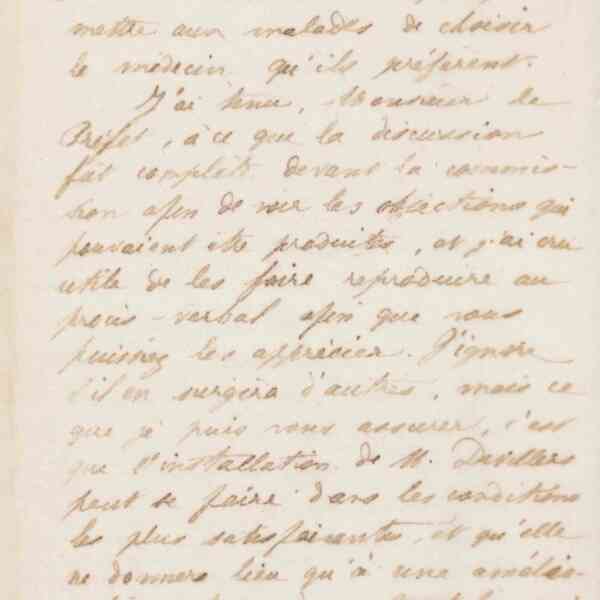 mettre aux malades de choisir
le médecin qu'ils préfèrent.
J'ai tenu, Monsieur le
Préfet, à ce que la discussion
fût complète devant la commis-
sion afin de voir les objections qui
pouvaient être produites, et j'ai cru
utile de les faire reproduire au
procès-verbal afin que vous
puissiez les apprécier. J'ignore
s'il en surgira d'autres, mais ce
que je puis vous assurer, c'est
que l'installation de M. Devillers
peut se faire dans les conditions
les plus satisfaisantes, et qu'elle
ne donnera lieu qu'à une amélio-